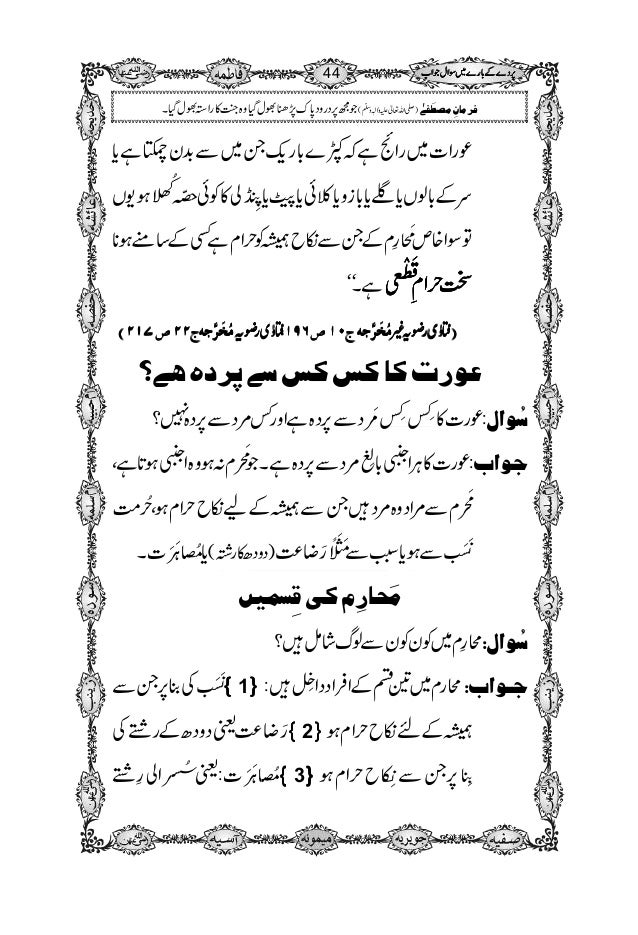 پردے کے بارے میں سوال جواب 44 فاطمہ
فرمانِ مصطَفٰے (صلی اللہ تعالیٰ علیہ والہٖ وسلّم) جو مجھ پر درود پاک پڑھنا بھول گیا وہ جنت کا راستہ بھول گیا۔
عورات میں رائج ہے کہ کپڑے باریک جن میں سے بدن چمکتا ہے یا
سر کے بالوں یا گلے یا بازو یا کلائی یا پیٹ یا پِنڈلی کا کوئی حصّہ کُھلا ہو یوں
تو سوا خاص مَحارِم کے جن سے نکاح ہمیشہ کو حرام ہے کسی کے سامنے ہونا
سخت حرامِ قَطْعی ہے۔‘‘
(فتاوٰی رضویہ غیر مُخَرَّجہ ج۱۰ ص۱۹۶ فتاوٰی رضویہ مُخَرَّجہ ج۲۲ ص ۲۱۷)
عورت کا کس کس سے پردہ ھے؟
سُوال: عورت کا کِس کِس مَرد سے پردہ ہے اور کس مرد سے پردہ نہیں؟
جواب: عورت کا ہر اجنبی بالِغ مرد سے پردہ ہے۔ جو مَحْرم نہ ہو وہ اجنبی ہوتا ہے،
مَحرم سے مراد وہ مرد ہیں جن سے ہمیشہ کے لیے نکاح حرام ہو، حُرمت
نَسَب سے ہو یا سبب سے مَثَلًا رَضاعت (دودھ کا رشتہ) یا مُصاہَرَت۔
مَحارِم کی قِسمیں
سُوال: محارِم میں کون کون سے لوگ شامل ہیں؟
جواب: محارِم میں تین قسم کے افراد داخِل ہیں: {1} نَسَب کی بنا پر جن سے
ہمیشہ کے لئے نکاح حرام ہو {2} رَضاعت یعنی دودھ کے رشتے کی
بِنا پر جن سے نِکاح حرام ہو {3} مُصاہَرَت: یعنی سُسرالی رِشتے
صفیہ جویریہ میمونہ آسیہ